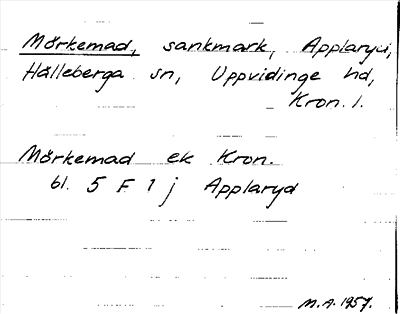 Mörkemad, sankmark, Applaryd,
Hälleberga sn, Uppvidinge hd,
Kron. l.
Mörkemad ek Kron.
bl. 5 F 1 j Applaryd
M.A. 1957.